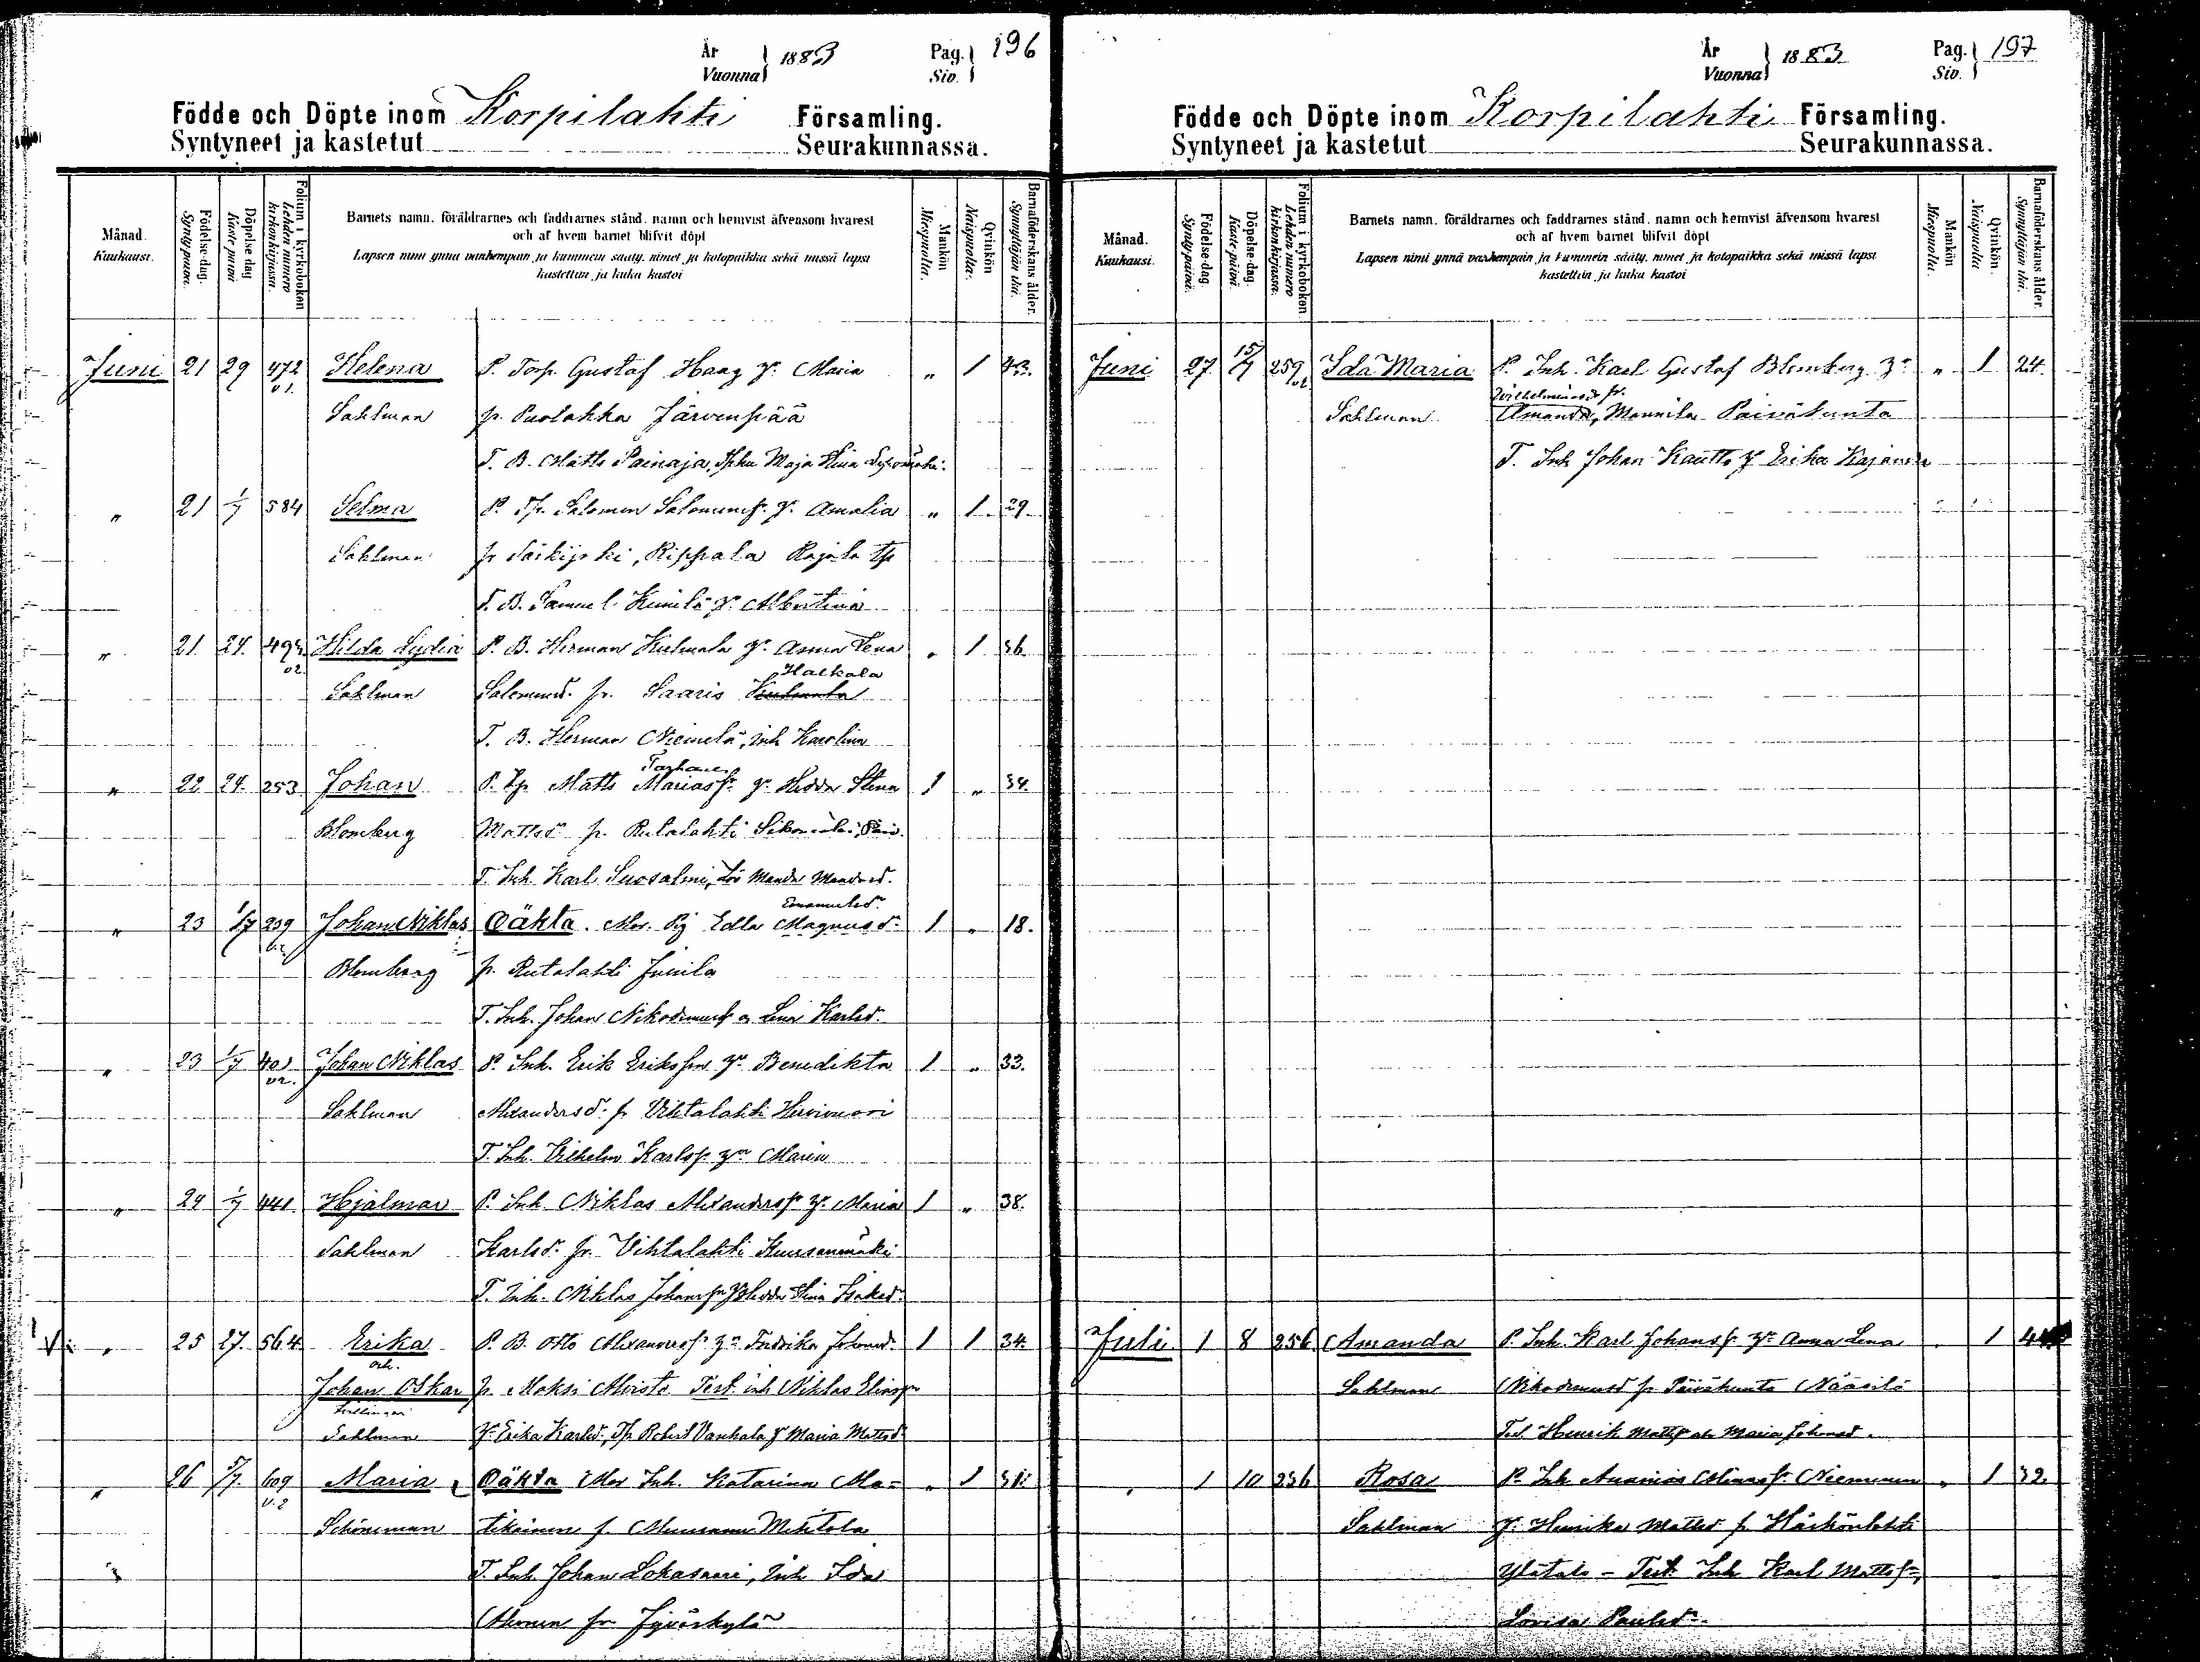 År
Vuonna 1883 Pag. Siv. 196
Födde och Döpte inom Korpilahti Församling.
Syntyneet ja kastetut Seurakunnassa.
Månad. Kuukausi.
Födelse-dag. Syntypäivä.
Döpelse dag Kaste päivä
Folium i kyrkoboken Lehden numero kirkonkirjassa.
Barnets namn, föräldrarnes och faddrarnes stånd, namn och hemvist äfvensom hvarest
och af hvem barnet blifvit döpt
Lapsen nimi ynnä vanhempain ja kummein sääty, nimet ja kotopaikka sekä missä lapsi
kastettiin ja kuka kastoi
Mankön Miespuolia.
Qvinkön Naispuolia.
Barnaföderskans ålder. Synnyttäjän ikä.
Juni 21 29 472 Helena P. Torp. Gustaf Haag Maria " 1 43.
v 1. Sahlman fr. Puolakka Järvenpää
T. B. Matts Painaja, Maja Stina
" 21 1/7 584 Selma P. Tp. Salomon Salomonsf. Amalia " 1 29
Sahlman fr Särkijoki, Rippala Rajala Tp
T. B. Samuel Albertina
" 21. 24. Hilda Lydia P. B. Herman Anna Lena " 1 36.
v2. Halkola
Sahlman Salomonsd. fr. Saaris
T. B. Herman Niemelä, inh Karolina
" 22 24. 253 Johan P. Tp Matts Mariasf. Hedda Stina 1 " 34.
Blomberg Mattsd. fr. Rutalahti
T. Inh. Karl Suosalmi, Manda
Emanuelsd.
" 23 1/7 239 Johan Niklas Oäkta. Mor. Pig Edla Magnusd. 1 " 18.
Blomberg fr. Rutalahti Junila
T. Inh. Johan Nikodemusf o Lena Karlsd.
" 23 1/7 401 Johan Niklas P. Inh. Erik Eriksson Benedikta 1 " 33.
v2. Sahlman Alexandersd. fr Vihtalahti Hirvivuori
T. Inh. Vilhelm Karlsf. Maria
" 24 1/7 441. Hjalmar P. Inh Niklas Alexandersf. Maria 1 " 38.
Sahlman Karlsd. fr. Vihtalahti Kuusanmäki
T. Inh. Niklas Johansson Hedda Stina Isaksd.
V: " 25 27. 564. Erika P. B. Otto Alexandersf. Fredrika Johansd. 1 1 34.
och
Johan Oskar fr. Moksi Test. inh Niklas Eliasf
tvillingar
Sahlman Erika Karlsd., Tp Robert Vanhala Maria Mattsd.
" 26 5/7. 609 Maria Oäkta Mor Inh. Katarina Ma- " 1
v.2 Schöneman tikainen f. Muurame Mikkola
T. Inh. Johan Lokasaari, Inh Ida
Ahonen fr Jyväskylä
År
Vuonna 1883. Pag. Siv. 197
Födde och Döpte inom Korpilahti Församling.
Syntyneet ja kastetut Seurakunnassa.
Månad. Kuukausi.
Födelse-dag. Syntypäivä.
Döpelse-dag. Kaste-päivä.
Folium i kyrkoboken Lehden numero kirkonkirjassa.
Barnets namn, föräldrarnes och faddrarnes stånd, namn och hemvist äfvensom hvarest
och af hvem barnet blifvit döpt
Lapsen nimi ynnä vanhempain ja kummein sääty, nimet ja kotopaikka sekä missä lapsi
kastettiin ja kuka kastoi
Mankön Miespuolia.
Qvinkön. Naispuolia
Barnaföderskans ålder. Synnyttäjän ikä.
Juni 27 15/7 259 Ida Maria P. Inh. Karl Gustaf Blomberg " 1 24.
Vilhelminasd fr.
Sahlman Amanda, Mannila Päiväkunta
T. Inh Johan Kautto Erika Kajander
Juli 1 8 256 Amanda P. Inh. Karl Johansf. Anna Lena " 1
Sahlman Nikodemusd fr Päiväkunta Nääsilä
Test Henrik Mattsf och Maria Johansd.
" 1 10 256 Rosa P. Inh Ananias Nieminen " 1 32.
Sahlman Henrika Mattsd fr Härkönlahti
Ylätalo - Test Inh Karl Mattsf,
Lovisa Paulsd.